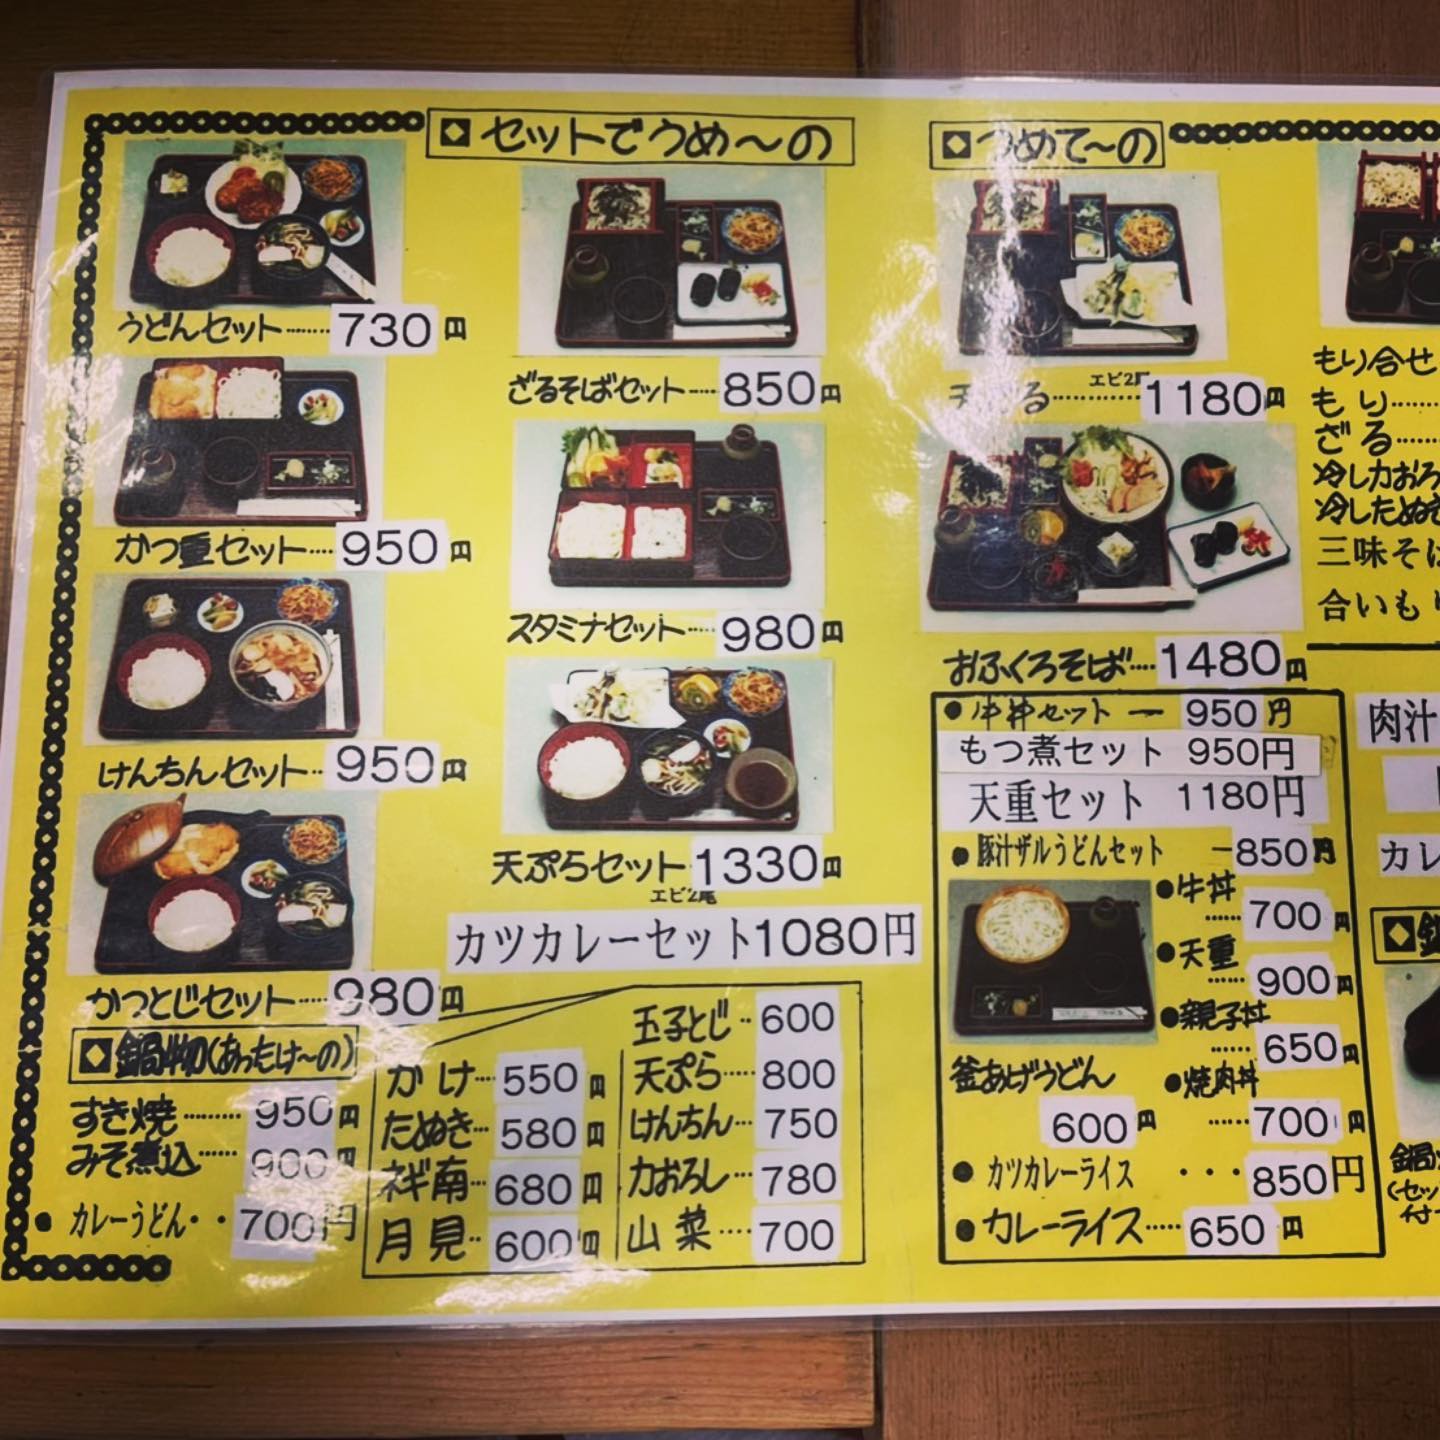 ◈ セットでうめ〜の
うどんセット……730円
かつ重セット……950円
けんちんセット‥950円
かつとじセット……980円
ざるそばセット……850円
スタミナセット……980円
天ぷらセット 1330円
エビ2尾
カツカレーセット1080円
◈ 鍋物(あったけ〜の)
すき焼………950円
みそ煮込……900円
● カレーうどん・・700円
かけ…550円
たぬき…580円
ネギ南…680円
月見‥600円
玉子とじ‥600
天ぷら……800
けんちん…750
力おろし…780
山菜……700
◈ うめて〜の
エビ2尾
…………1180円
おふくろそば……1480円
● 牛丼セット ー 950円
もつ煮セット 950円
天重セット 1180円
● 豚汁ザルうどんセット ー850円
● 牛丼
……700円
● 天重
……900円
● 親子丼
……650円
● 焼肉丼
……700円
釜あげうどん
600円
● カツカレーライス ・・・850円
● カレーライス……650円
もり合せ
もり……
ざる……
冷し力おろ
冷したぬき
三味そば
合いもり
肉汁
カレ
◈ 鍋
(セッ
付